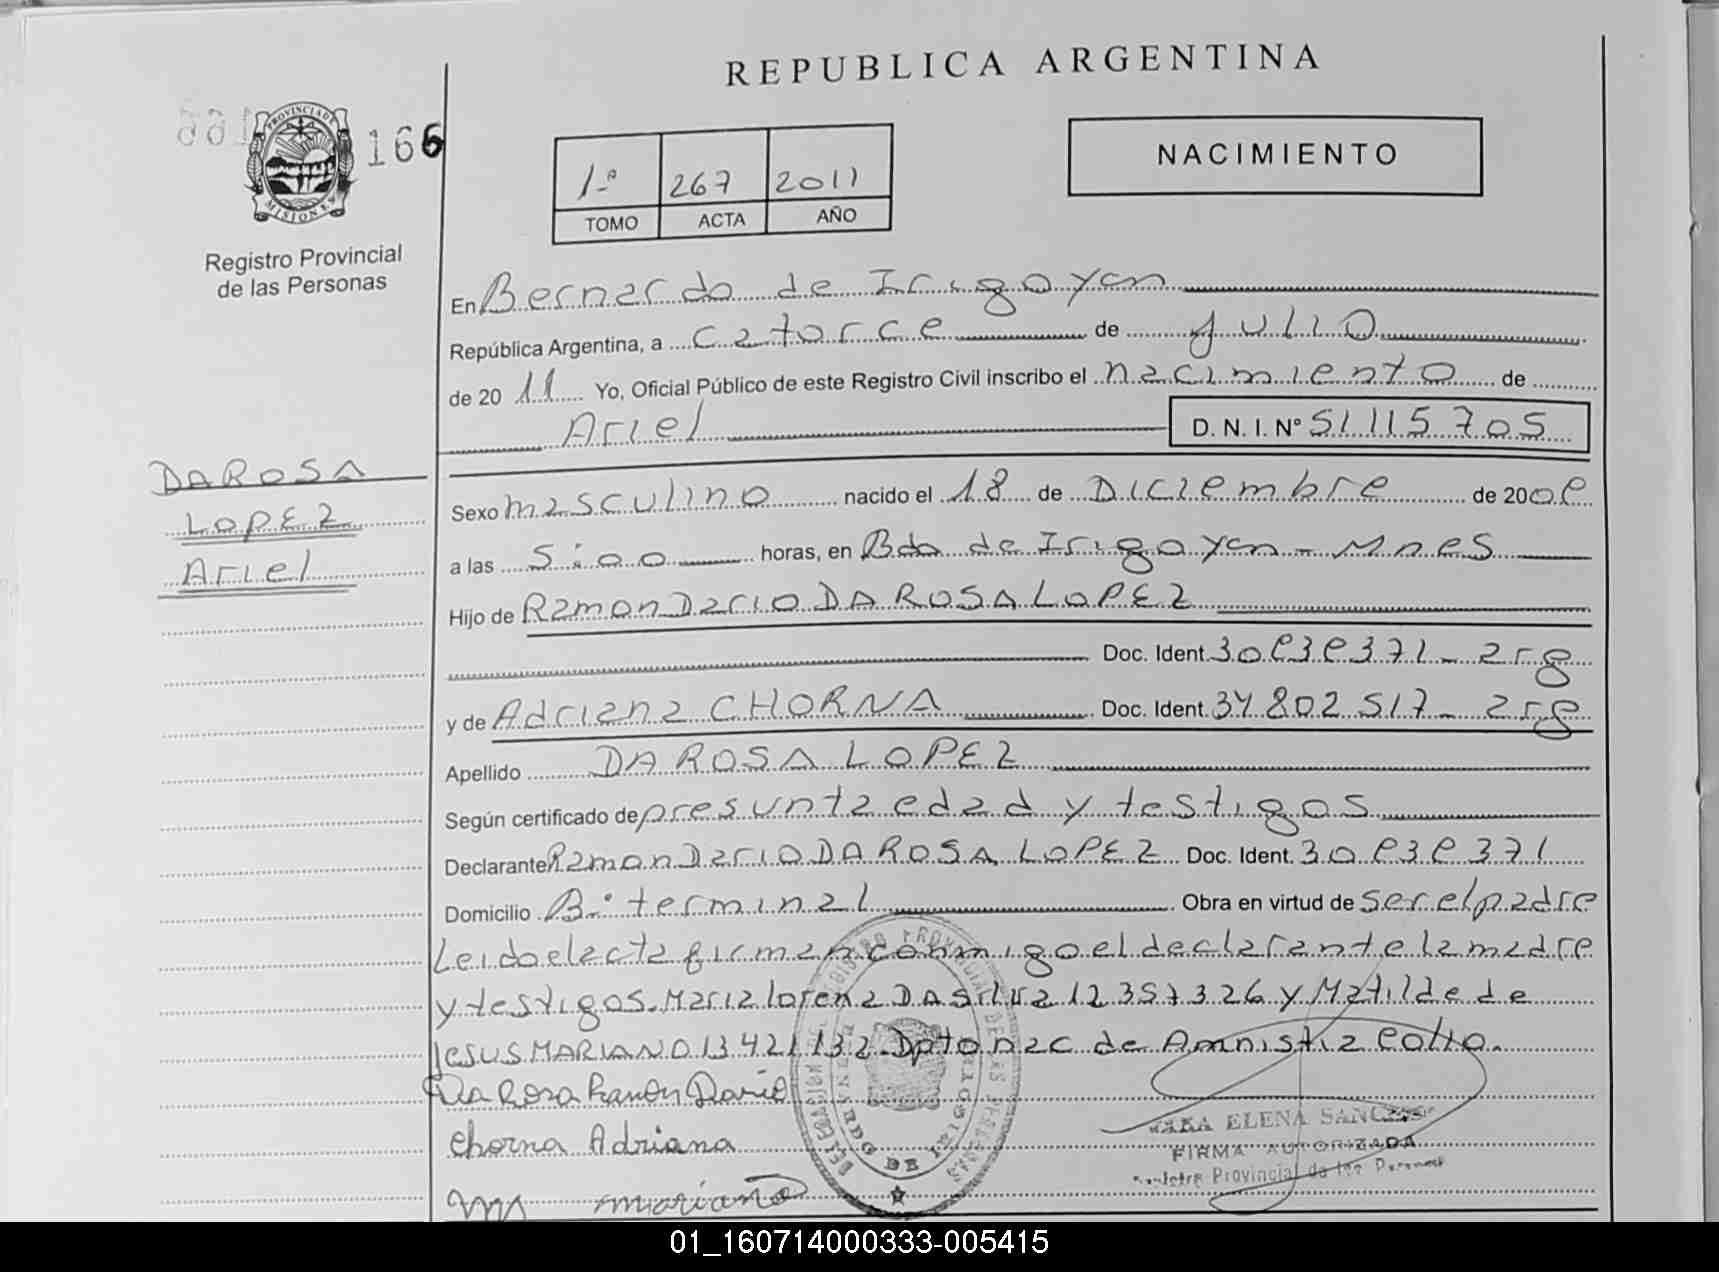 REPUBLICA ARGENTINA
PROVINCIA DE
MISIONES
166
NACIMIENTO
1º 267 2011
TOMO ACTA AÑO
Registro Provincial
de las Personas
En Bernardo de Irigoyen
República Argentina, a catorce de Julio
de 20 11 Yo, Oficial Público de este Registro Civil inscribo el nacimiento de
Ariel D. N. I. Nº 51 115 705
DA ROSA
LOPEZ
Ariel
Sexo masculino nacido el 18 de Diciembre de 20
a las 5:00 horas, en Bdo de Irigoyen - Mnes
Hijo de Ramon Dario DA ROSA LOPEZ
Doc. Ident. - arg
y de Adriana CHORNA Doc. Ident. 34 802 517 - arg
Apellido DA ROSA LOPEZ
Según certificado de presunta edad y testigos
Declarante Ramon Dario DA ROSA LOPEZ Doc. Ident.
Domicilio Bº terminal Obra en virtud de ser el padre
Leido el acta firman conmigo el declarante la madre
y testigos. Maria lorena DA Silva 12 357 326 y Matilde de
JESUS MARIANO 13 421 132 Dpto nac de Amnistia
Da Rosa Ramon Dario
Chorna Adriana
mariano
ELENA
FIRMA AUTORIZADA
Registro Provincial de las Personas
01_160714000333-005415